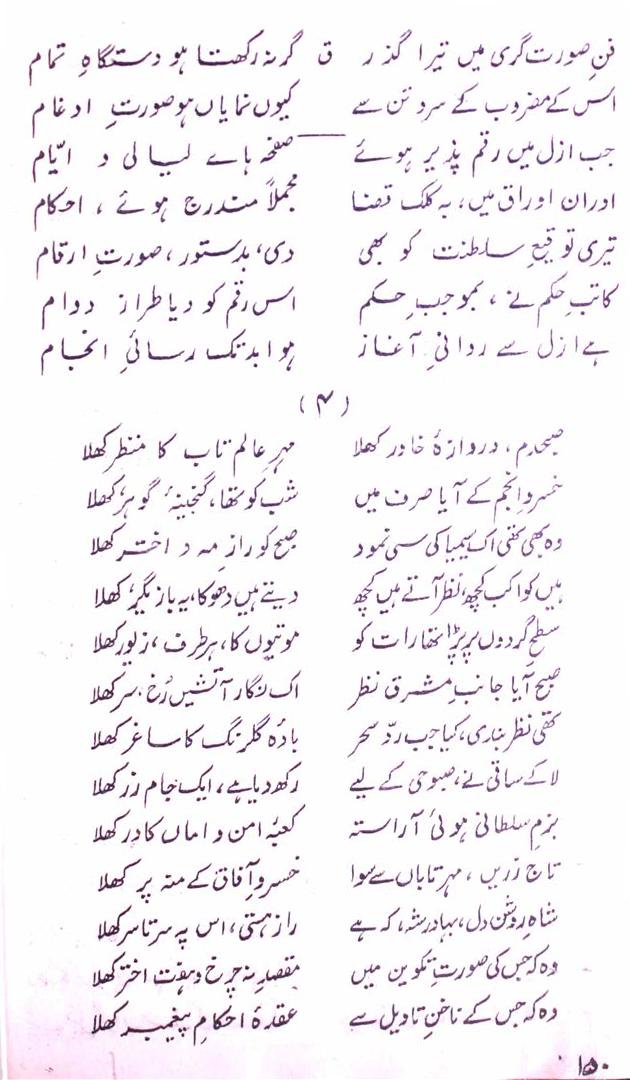 فنِ صورت گری میں تیرا گُرز ق گر نہ رکھتا ہو دستگاہِ تمام
اس کے مضروب کے سر و تن سے کیوں نمایاں ہو صورتِ ادغام
جب ازل میں رقم پذیر ہوئے صفحہ ہاے لیالی و ایّام
اور ان اوراق میں، بہ کلکِ قضا مجملاً مندرج ہوئے، احکام
تیری توقیعِ سلطنت کو بھی دی، بدستور، صورتِ ارقام
کاتبِ حکم نے، بموجبِ حکم اس رقم کو دیا طرازِ دوام
ہے ازل سے روانیِ آغاز ہو ابد تک رسائیِ انجام
(۴)
صبحدم، دروازۂ خاور کھلا مہرِ عالم تاب کا منظر کھلا
خسروِ انجم کے آیا صرف میں شب کو تھا، گنجینۂ گوہر کھلا
وہ بھی تھی اک سیمیا کی سی نمود صبح کو رازِ مہ و اختر کھلا
ہیں کواکب کچھ، نظر آتے ہیں کچھ دیتے ہیں دھوکا، یہ بازیگر، کھلا
سطحِ گردوں پر پڑا تھا رات کو موتیوں کا، ہر طرف، زیور کھلا
صبح آیا جانبِ مشرق نظر اک نگارِ آتشیں رُخ، سر کھلا
تھی نظر بندی، کیا جب ردِّ سحر بادۂ گلرنگ کا ساغر کھلا
لا کے ساقی نے، صبوحی کے لیے رکھ دیا ہے، ایک جامِ زر کھلا
بزمِ سلطانی ہوئی آراستہ کعبۂ امن و اماں کا در کھلا
تاجِ زرّیں، مہرِ تاباں سے سوا خسروِ آفاق کے منہ پر کھلا
شاہِ روشن دل، بہادر شہ، کہ ہے رازِ ہستی، اس پہ سر تا سر کھلا
وہ کہ جس کی صورتِ تکوین میں مقصدِ نہ چرخ و ہفت اختر کھلا
وہ کہ جس کے ناخنِ تاویل سے عقدۂ احکامِ پیغمبر کھلا
۱۵۰